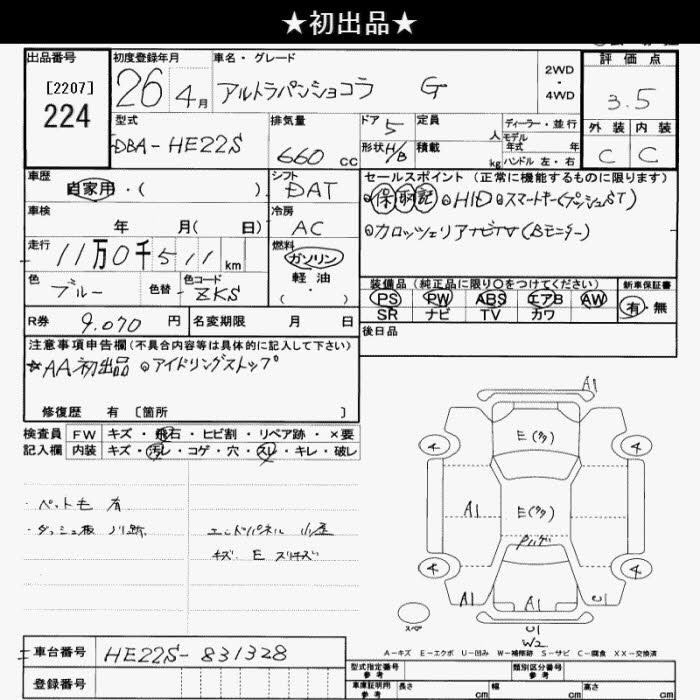 ★初出品★
出品番号
[2207]
224
初度登録年月
26 4月
車名・グレード
アルトラパンショコラ G
2WD
・
4WD
評価点
3.5
外装 内装
C C
型式
DBA-HE22S
排気量
660 cc
ドア 5
形状 H/B
定員 人
積載 kg
ディーラー・並行
モデル
年式 年
ハンドル 左・右
車歴
自家用・( )
シフト
DAT
車検
年 月( 日)
冷房
AC
走行
11万0千511km
燃料
ガソリン
軽油
( ・ )
色
ブルー
色替
色コード
ZKS
セールスポイント (正常に機能するものに限ります)
⊙保取記 ⊙HID ⊙スマートキー(プッシュST)
⊙カロッツェリアナビTV(Bモニター)
装備品(純正品に限り○をつけてください)
PS PW ABS エアB AW
SR ナビ TV カワ
新車保証書
有・無
後日品
R券 9.070 円
名変期限 月 日
注意事項申告欄(不具合内容等は具体的に記入して下さい)
☆AA初出品 ⊙アイドリングストップ
修復歴 有 〔箇所 〕
検査員 FW キズ・飛石・ヒビ割・リペア跡・×要
記入欄 内装 キズ・汚レ・コゲ・穴・スレ・キレ・破レ
・ペット毛 有
・ダッシュ板 ノリ跡
エンドパネル 小歪
キズ E スリキズ
A1
E(多)
4 4
A1
E(多)
4 4
A1 A1 U1
スペア
U1
W2
A-キズ E-エクボ U-凹み W-補修跡 S-サビ C-腐食 XX-交換済
車台番号 HE22S-831328
登録番号
型式指定番号
参考
類別区分番号
参考
車庫証明用
参考
長さ cm 幅 cm 高さ cm